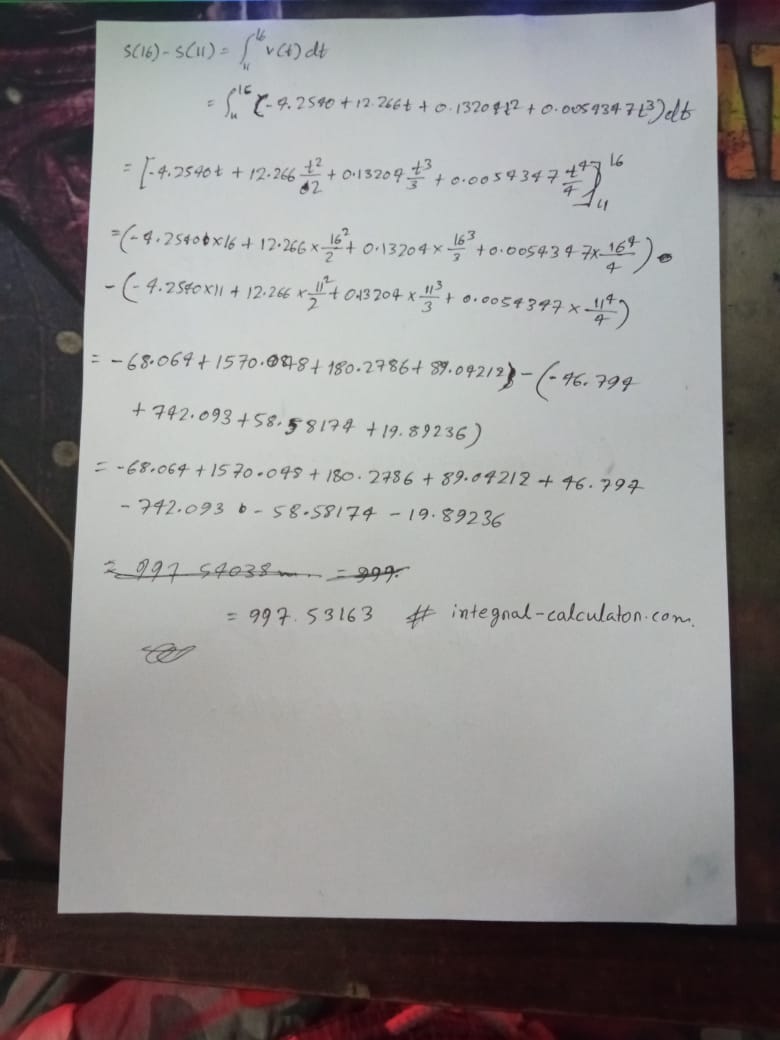 S(16) - S(11) = ∫₁₁¹⁶ v(t) dt
= ∫₁₁¹⁶ (-4.2540 + 12.266t + 0.13204t² + 0.0054347t³) dt
= [-4.2540t + 12.266 t²/2 + 0.13204 t³/3 + 0.0054347 t⁴/4]₁₁¹⁶
= (-4.2540×16 + 12.266×16²/2 + 0.13204×16³/3 + 0.0054347×16⁴/4)
- (-4.2540×11 + 12.266×11²/2 + 0.13204×11³/3 + 0.0054347×11⁴/4)
= -68.064 + 1570.048 + 180.2786 + 89.04212) - (-46.794
+ 742.093 + 58.58174 + 19.89236)
= -68.064 + 1570.048 + 180.2786 + 89.04212 + 46.794
- 742.093 - 58.58174 - 19.89236
= 997.54038m. = 997.
= 997.53163 # integral-calculator.com.